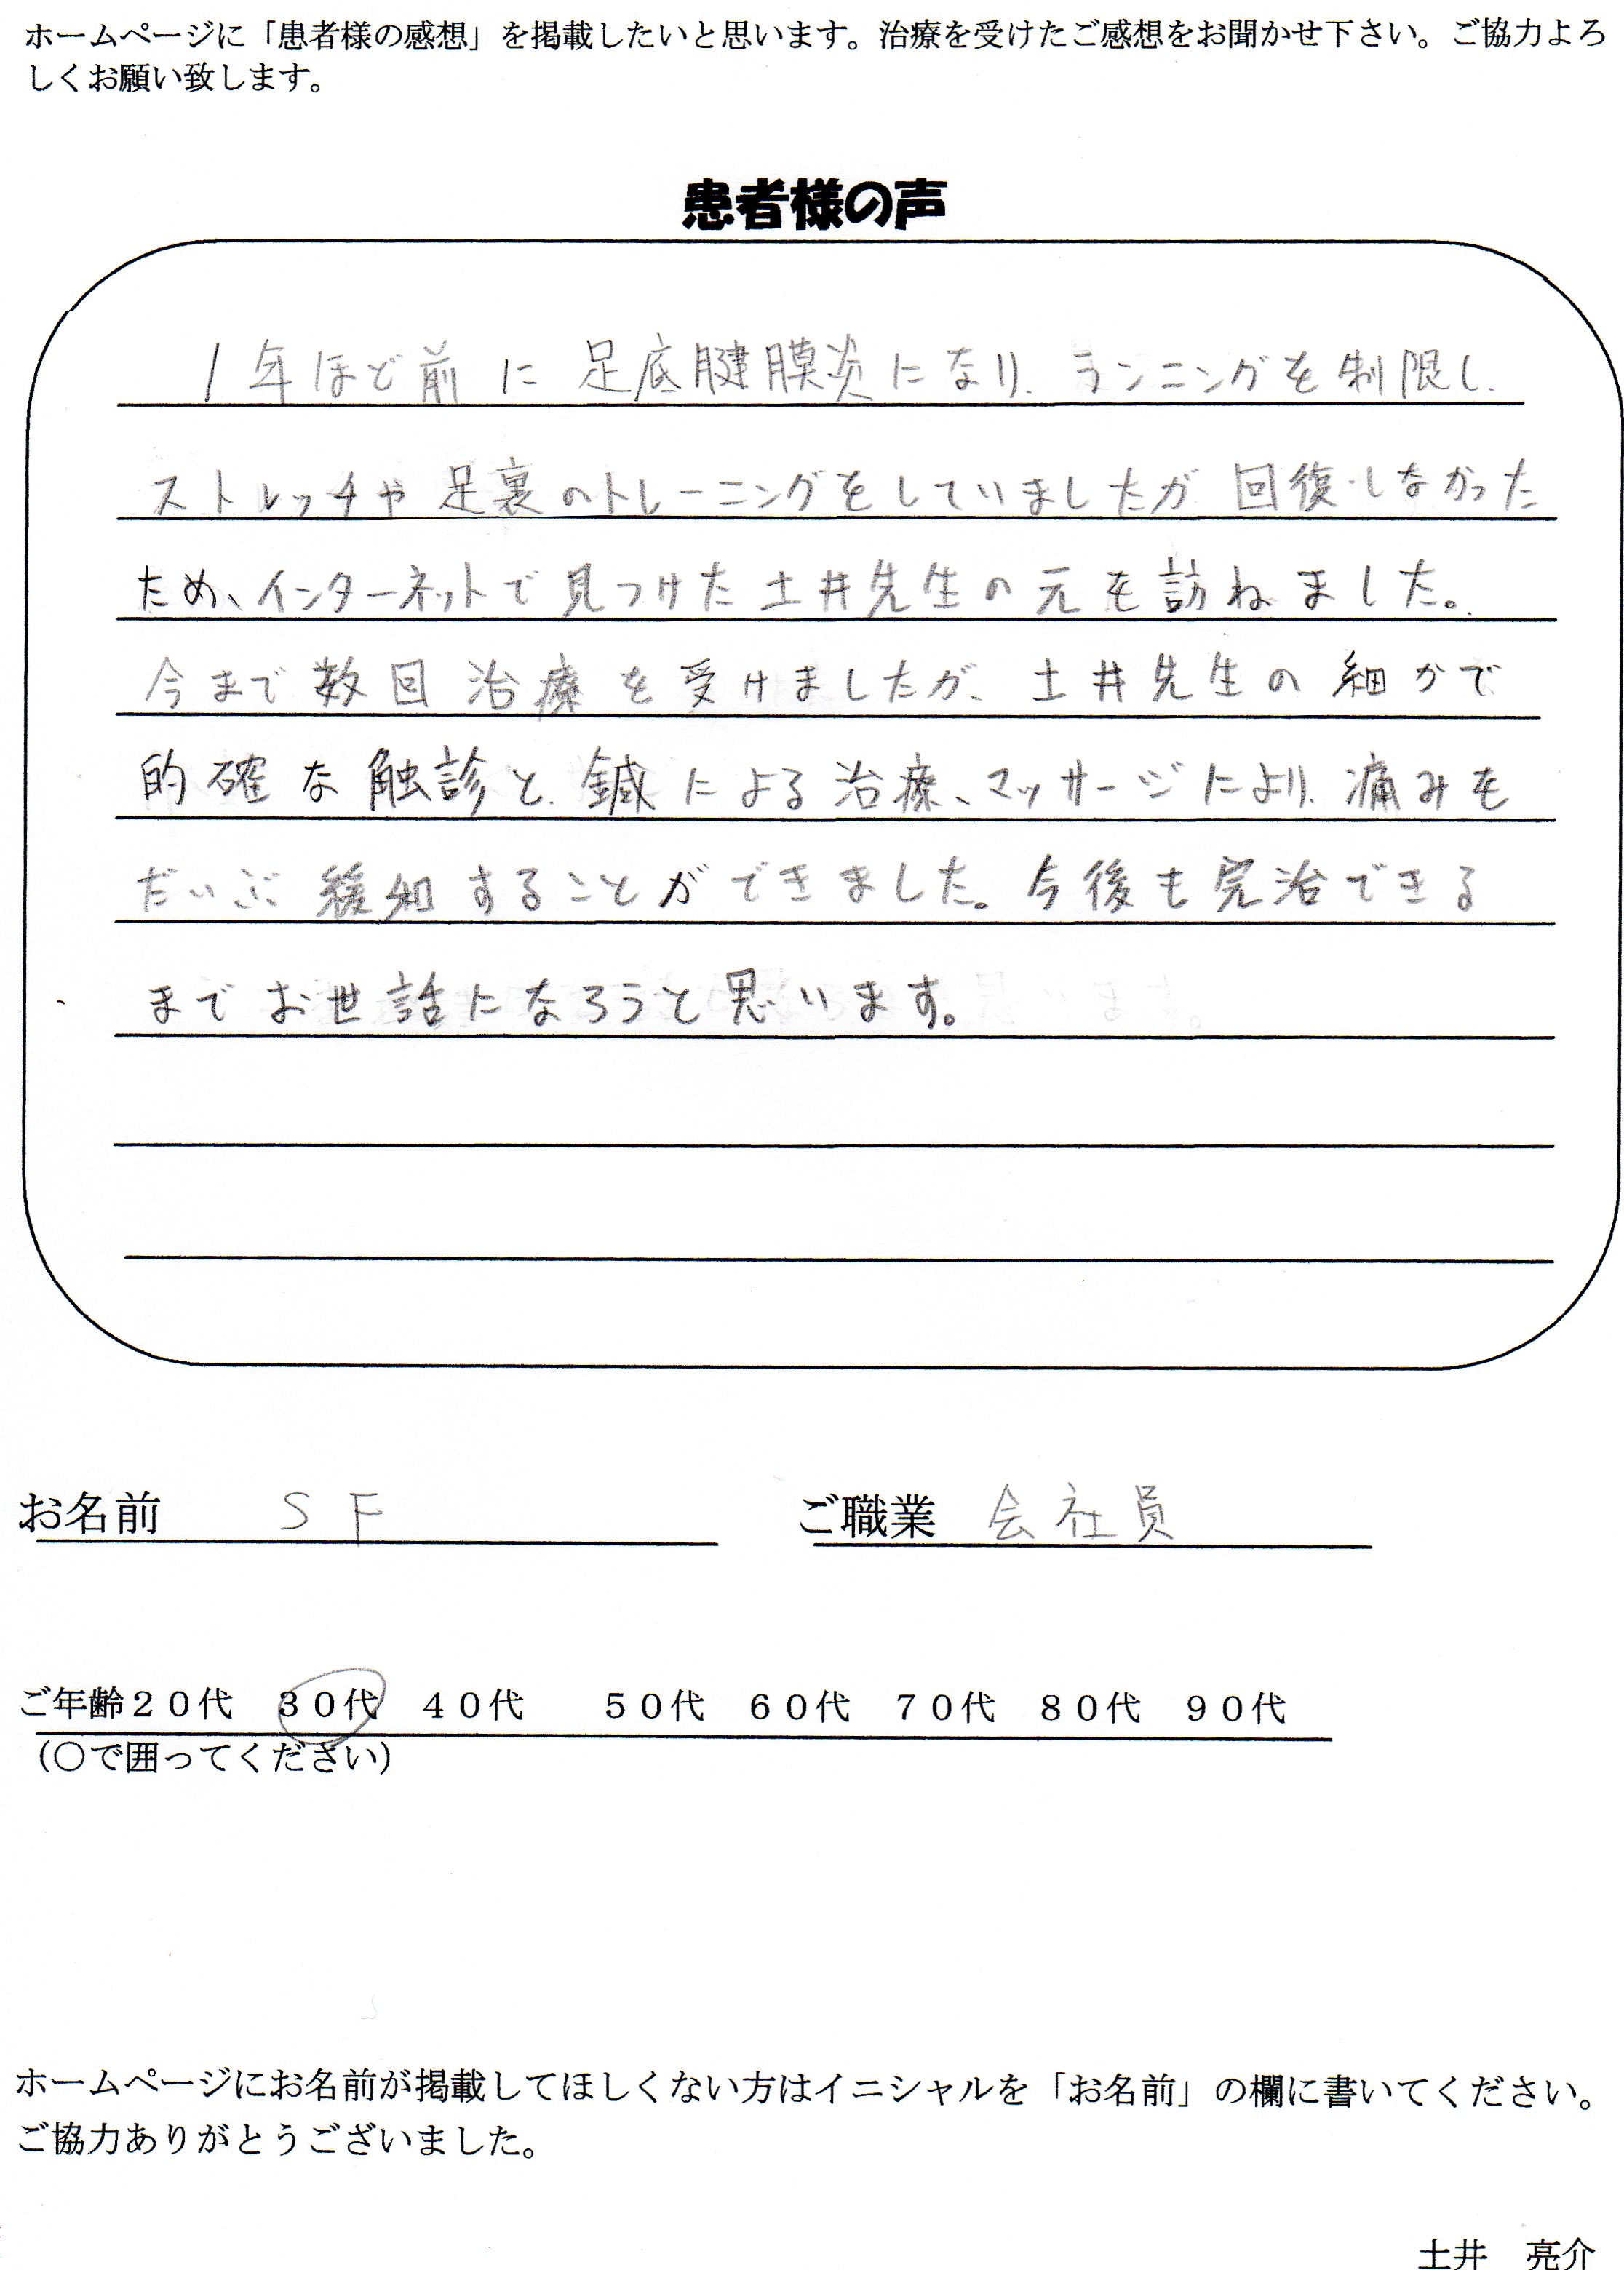 ホームページに「患者様の感想」を掲載したいと思います。治療を受けたご感想をお聞かせ下さい。ご協力よろ
しくお願い致します。
患者様の声
1年ほど前に足底腱膜炎になり、ランニングを制限し、
ストレッチや足裏のトレーニングをしていましたが回復しなかった
ため、インターネットで見つけた土井先生の元を訪ねました。
今まで数回治療を受けましたが、土井先生の細かで
的確な触診と、鍼による治療、マッサージにより、痛みを
だいぶ緩和することができました。今後も完治できる
までお世話になろうと思います。
お名前 SF ご職業 会社員
ご年齢20代 30代 40代 50代 60代 70代 80代 90代
(○で囲ってください)
ホームページにお名前が掲載してほしくない方はイニシャルを「お名前」の欄に書いてください。
ご協力ありがとうございました。
土井 亮介